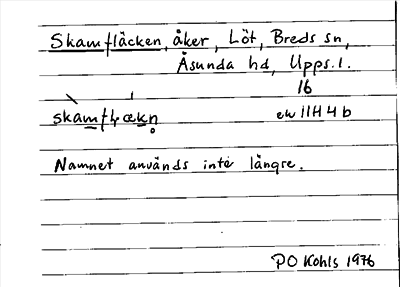 Skamfläcken, åker, Löt, Breds sn,
Åsunda hd, Upps. l.
16
skamfɫækn̥ ek 11H4b
Namnet används inte längre.
PO Kohls 1976